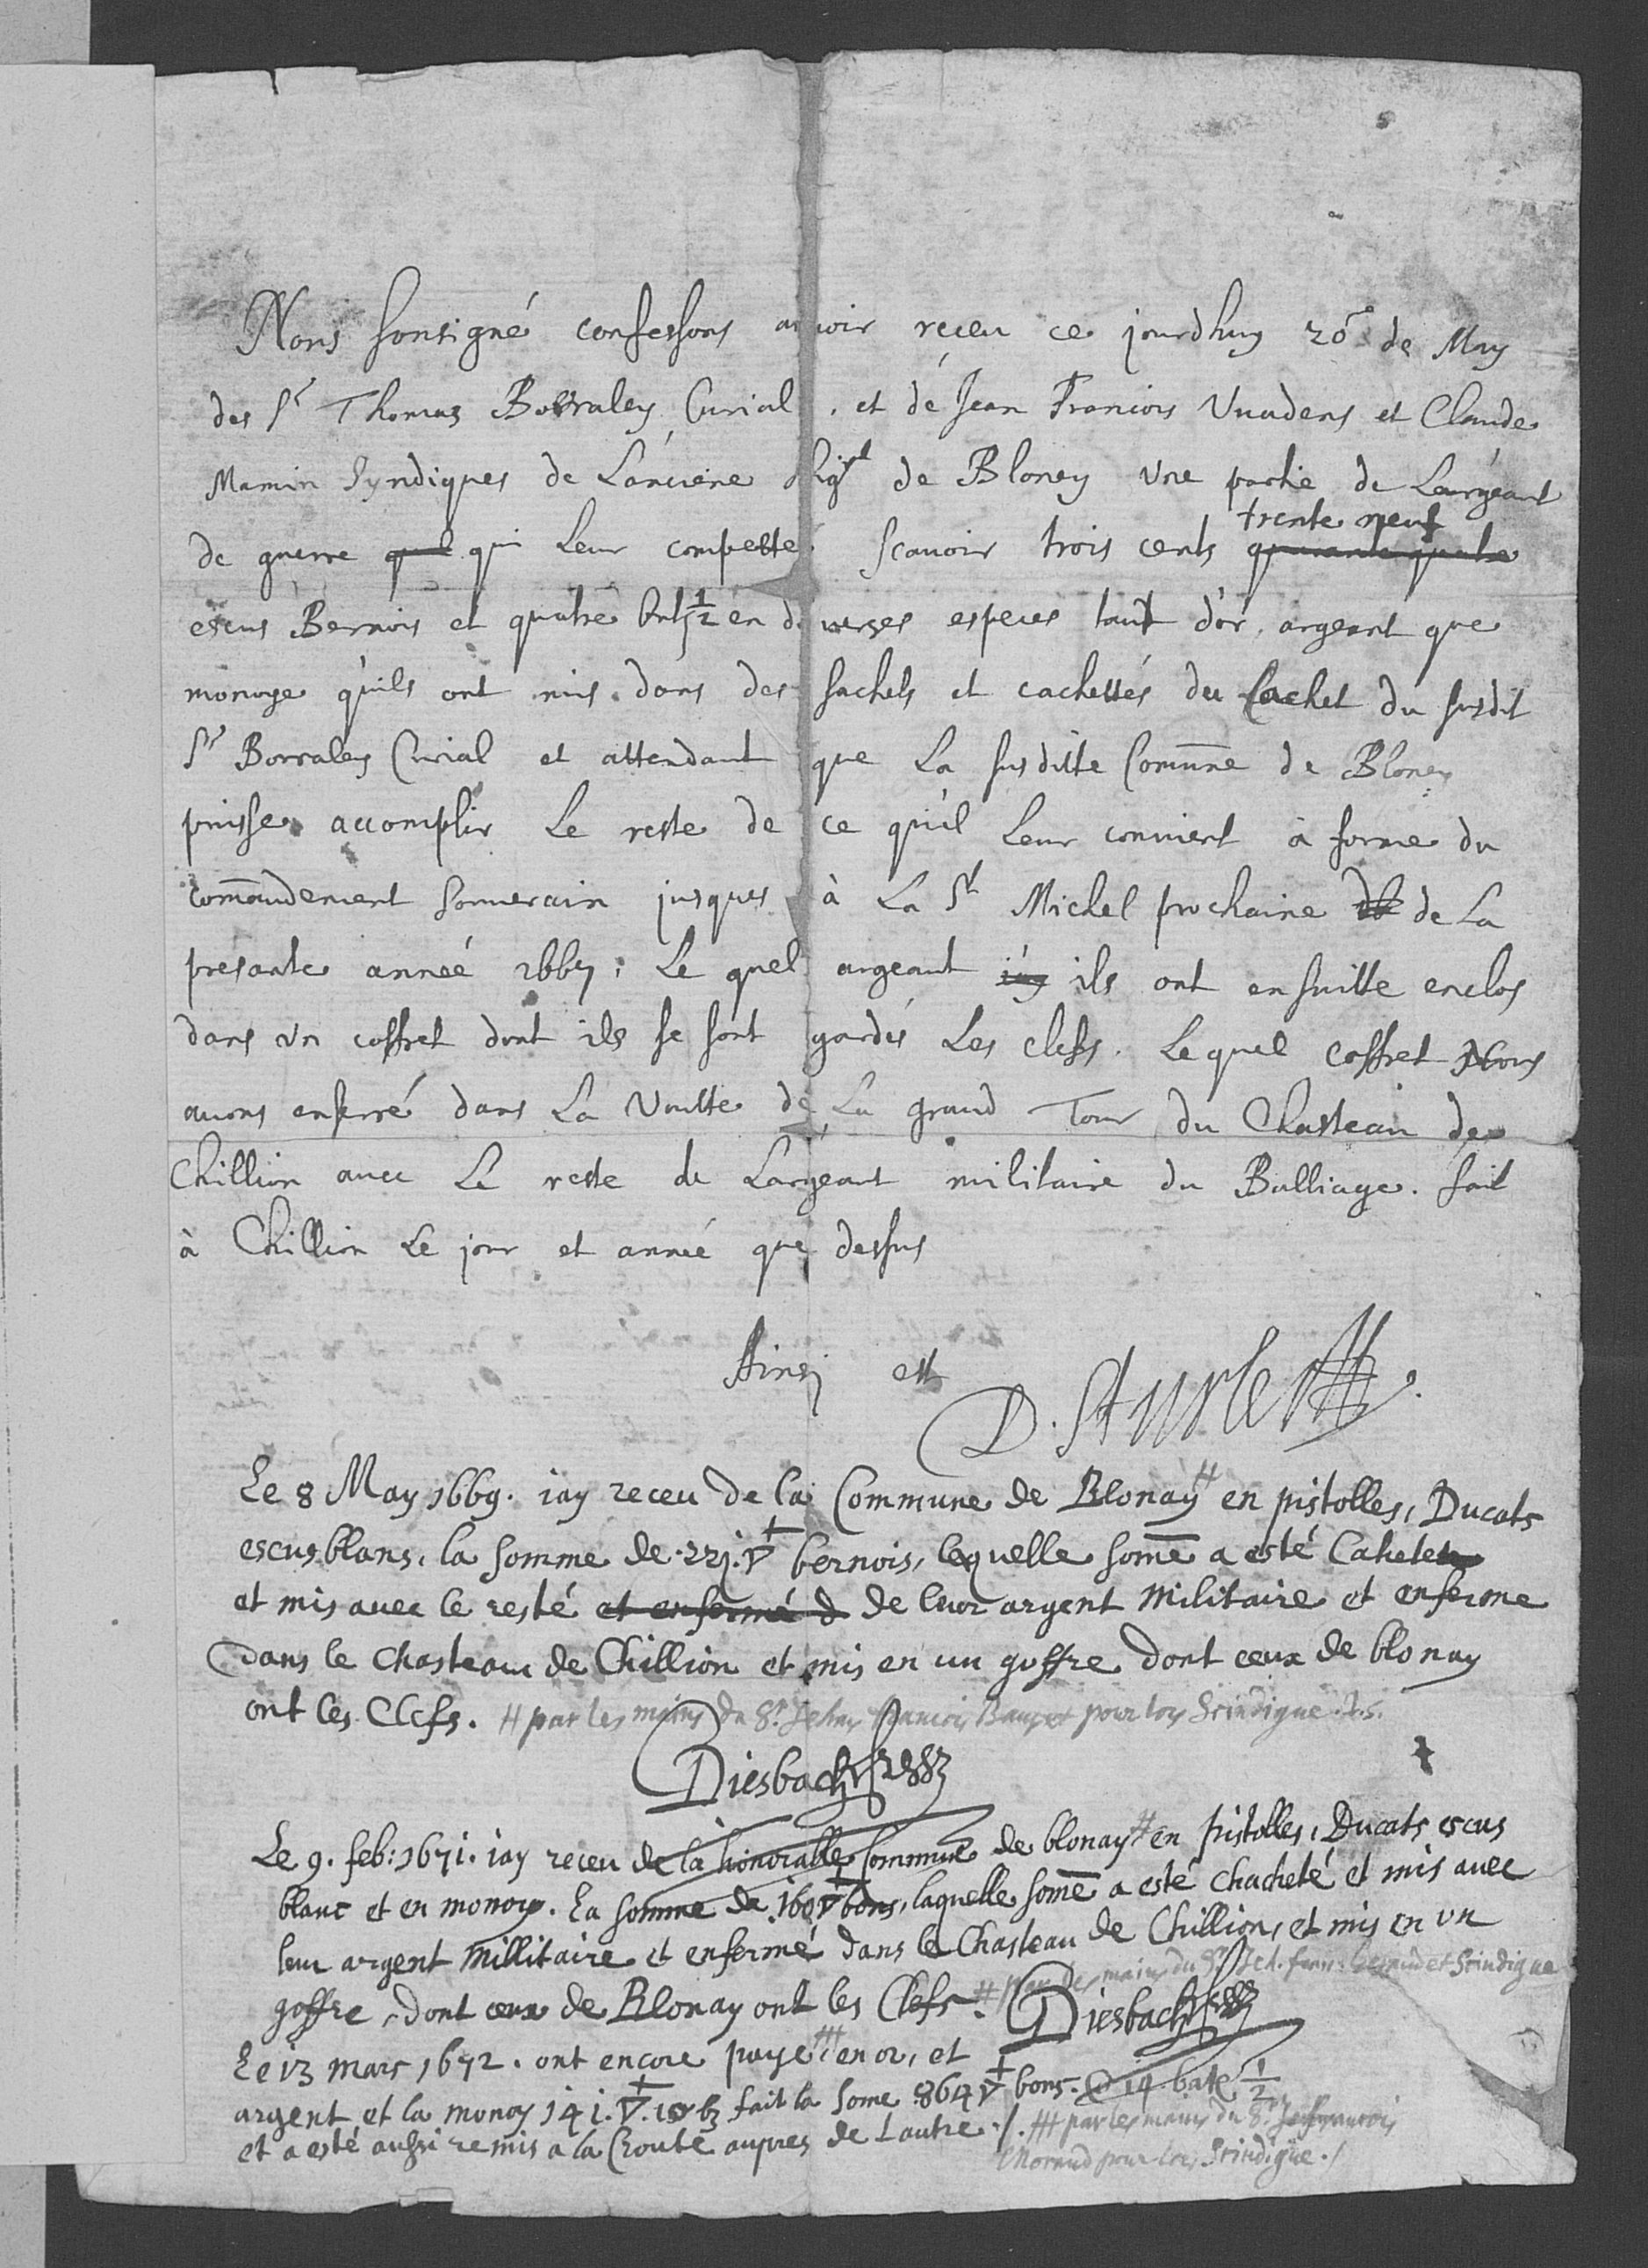 Nous sonsigné confessons avoir receu ce jourdhuy 20e de May
des Sr Thomas Borraley Curial, et de Jean Francois Vuadens et Claude
Mamin Syndiques de Lanciene de Bloney une partie de Largeant
trente neuf
de guerre qui leur compette scavoir trois cents quarante quatre
escus Bernois et quatre btz ½ en diverses especes taut d'or, argeant que
monoye quils ont mis dans des sachets et cachettés du Cachet du susdit
Sr Borraley Curial et attendant que La susditte Comune de Bloney
puisse accomplir Le reste de ce quil Leur convient à forme du
comandement souverain jusques à La St Michel prochaine de La
presante année 1667, Le quel argeant ils ont ensuitte enclos
dans un coffret dont ils se sont gardés Les clefs. Lequel coffret Nous
avons enserré dans La Voutte de La grand Tour du Chasteau de
Chillion avec Le reste de Largeant militaire du Balliage. fait
à Chillion Le jour et année que dessus
Ainsy est
D. Sturler
Le 8 May 1669. iay receu de la Commune de Blonay # en pistolles, Ducats
escus blans, la somme de 221. bernois, lequelle some a esté Cahete
et mis avec le resté et enfermé d de leur argent Militaire et enferme
dans le chasteau de Chillion et mis en un goffre dont ceux de blonay
ont les Clefs. # par les mains du Sr. Jehan francois pour lors Scindique
Diesbach
Le 9. feb: 1671. iay receu de la honorable Commune de blonay # en pistolles, Ducats escus
blanc et en monoy. La somme de 160 bons, laquelle some a esté chacheté et mis avec
leur argent Millitaire et enfermé dans le Chasteau de Chillion, et mis en un
goffre, dont ceux de Blonay ont les Clefs. # par les mains du Sr Scindique
Diesbach
Le 13 mars 1672. ont encore paye en or, et
argent et la monoy 141. 10 bz fait la some 864 bons. 14. batz ½
et a esté aussi remis a la Croute aupres de Lautre./. par les mains du Sr francois
Morand pour lors Scindique./